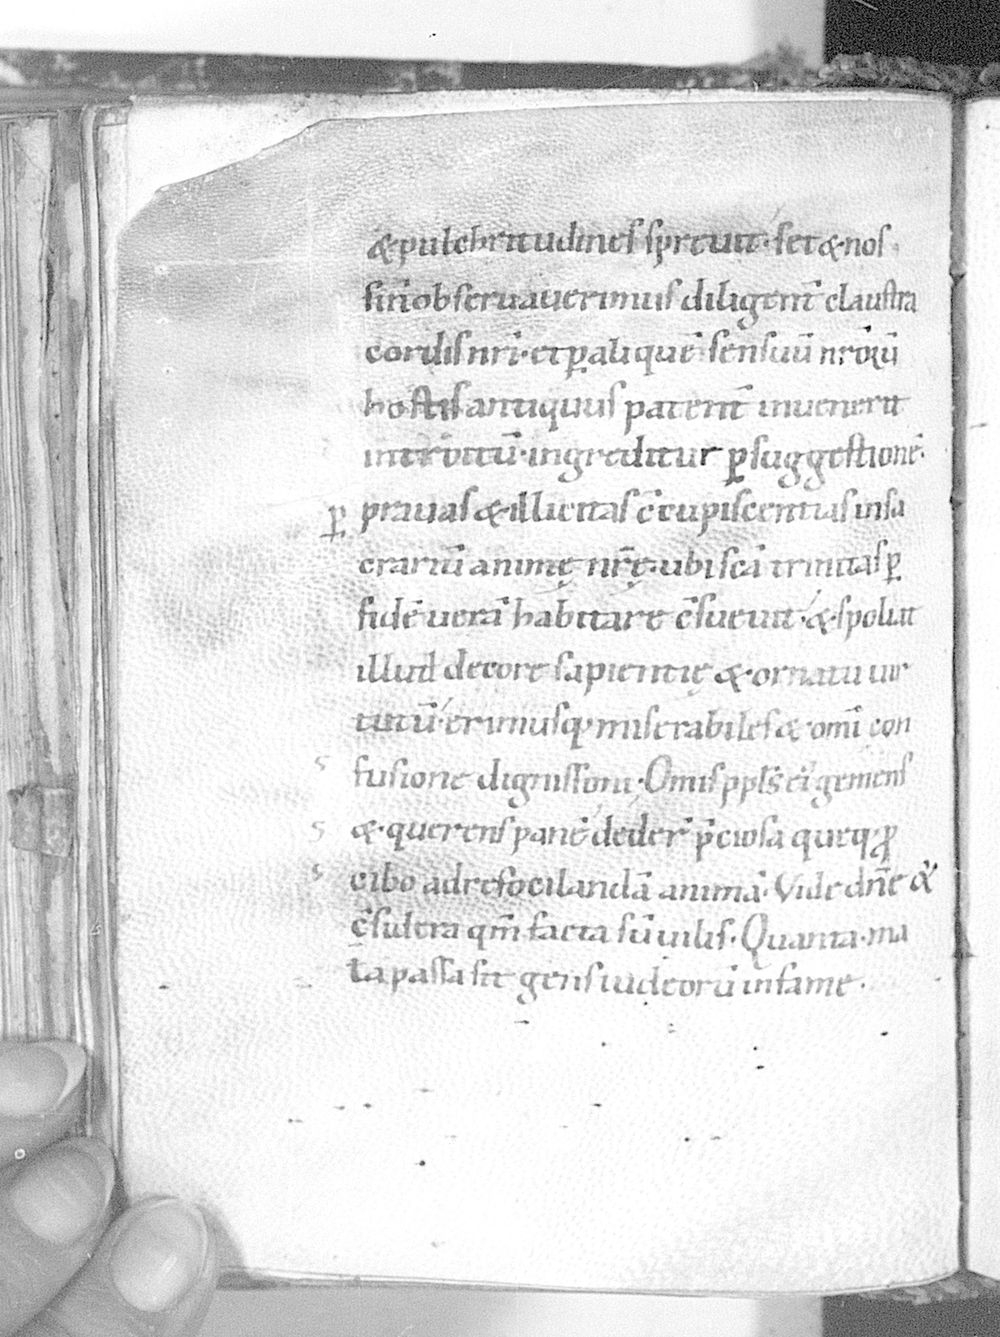 & pulchritudines spreuit· set & nos
si ñ obseruauerimus diligent̄ claustra
cordis nr̄i· et ꝑ aliquē sensuū nr̄oꝝ
hostis antiquus patent̄ inuenerit
introitū· ingreditur ꝑ suggestionē·
ꝑ prauas & illicitas c̄cupiscentias in sa
crariū animę nr̄ę· ubi sc̄a trinitas ꝑ
fidē uerā habitare c̄sueuit· & spoliat
illud decore sapientię & ornatu uir
tutū· erimusq; miserabiles & omī con
s fusione dignissimi· Omīs ppl̄s ei' gemens
s & querens panē· deder̄ p̄ciosa queq; ꝓ
s cibo ad refocilandā animā· Vide dn̄e &
c̄sidera qm̄ facta sū uilis· Quanta· ma
la passa sit gens iudeorū in fame·